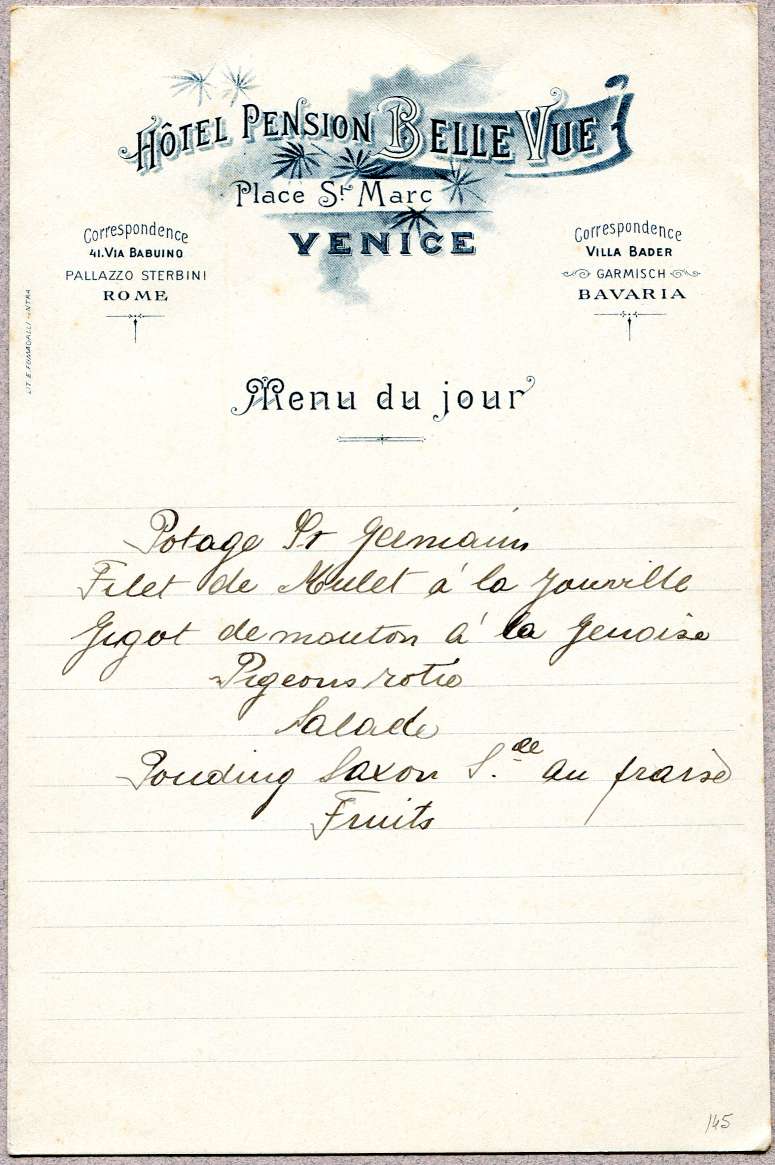 HÔTEL PENSION BELLE VUE
Place St Marc
VENICE
Correspondence
41. VIA BABUINO
PALLAZZO STERBINI
ROME
Correspondence
VILLA BADER
GARMISCH
BAVARIA
LIT. E. FUMAGALLI - INTRA
Menu du jour
Potage St Germain
Filet de Mulet á la Jouville
Gigot de mouton á la Genoise
Pigeons rotie
Salade
Pouding Saxon S.de au fraise
Fruits
145